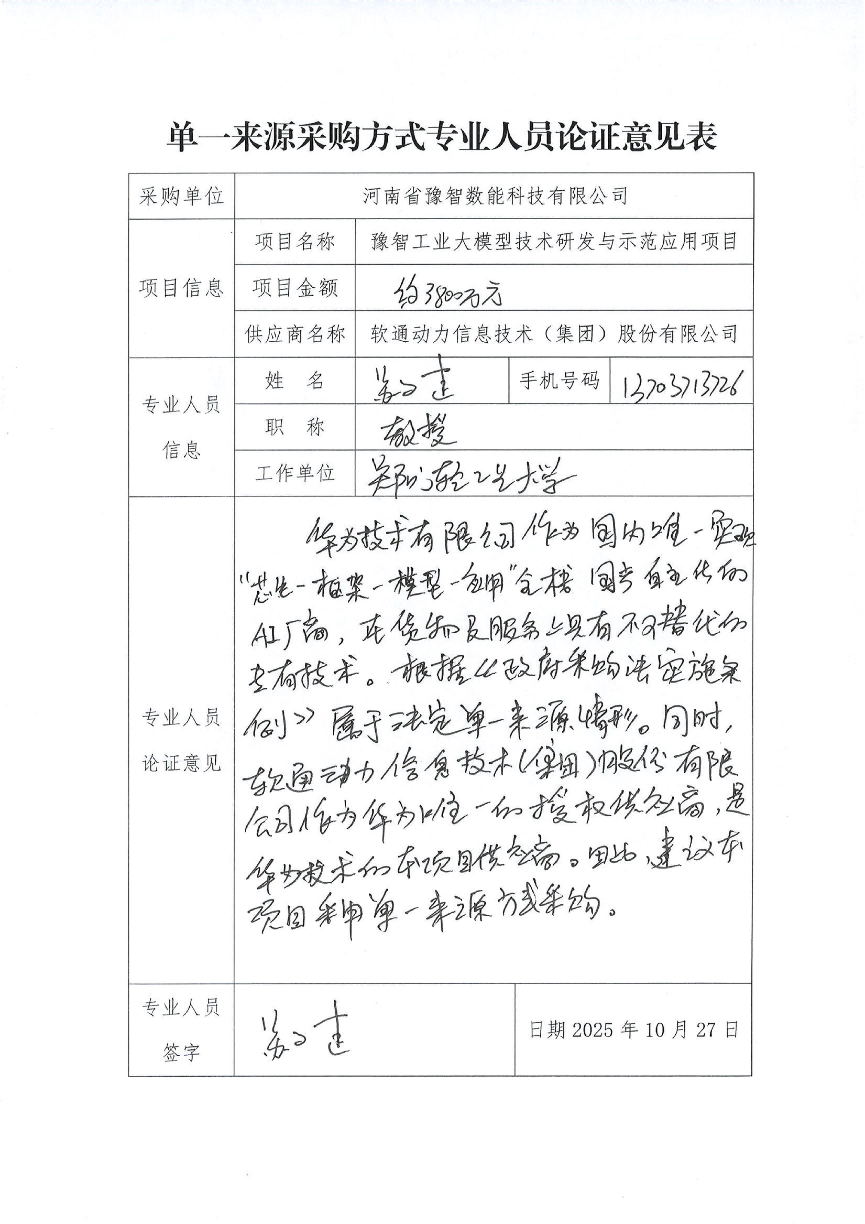 单一来源采购方式专业人员论证意见表
采购单位 河南省豫智数能科技有限公司
项目信息
项目名称 豫智工业大模型技术研发与示范应用项目
项目金额 约3800万元
供应商名称 软通动力信息技术（集团）股份有限公司
专业人员信息
姓 名 手机号码 13703713726
职 称 教授
工作单位 郑州轻工业大学
专业人员论证意见
华为技术有限公司作为国内唯一实现
“芯片-框架-模型-应用”全栈国产自主化的
AI厂商，在货物及服务上具有不可替代的
专有技术。根据《政府采购法实施条
例》属于法定单一来源情形。同时，
软通动力信息技术(集团)股份有限
公司作为华为唯一的授权供应商，是
华为技术的本项目供应商。因此，建议本
项目采用单一来源方式采购。
专业人员签字
日期 2025 年 10 月 27 日